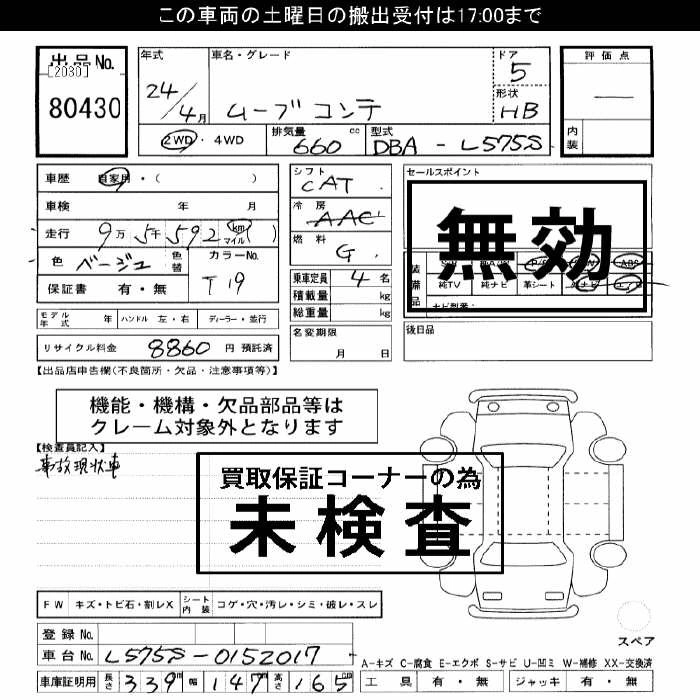 この車両の土曜日の搬出受付は17:00まで
出品No.
[2030]
80430
年式
24/4月
車名・グレード
ムーブコンテ
ドア
5
形状
HB
評価点
内装
2WD・4WD
排気量 660 cc
型式 DBA-L575S
車歴 自家用・( )
車検 年 月
走行 9万5千592 (km マイル)
色 ベージュ 色替
カラーNo. T19
保証書 有・無
シフト
CAT
冷房
AAC
燃料
G
乗車定員 4名
積載量 kg
総重量 kg
名変期限
月 日
セールスポイント
無効
純TV 純ナビ 革シート
後日品
モデル年式 年 ハンドル 左・右 ディーラー・並行
リサイクル料金 8860 円 預託済
【出品店申告欄(不良箇所・欠品・注意事項等)】
機能・機構・欠品部品等は
クレーム対象外となります
【検査員記入】
事故現状車
買取保証コーナーの為
未検査
FW キズ・トビ石・割レX シート内装 コゲ・穴・汚レ・シミ・破レ・スレ
スペア
登録No.
車台No. L575S-0152017
A-キズ C-腐食 E-エクボ S-サビ U-凹ミ W-補修 XX-交換済
車庫証明用 長さ 339 幅 147 高さ 165 cm
工具 有・無 ジャッキ 有・無